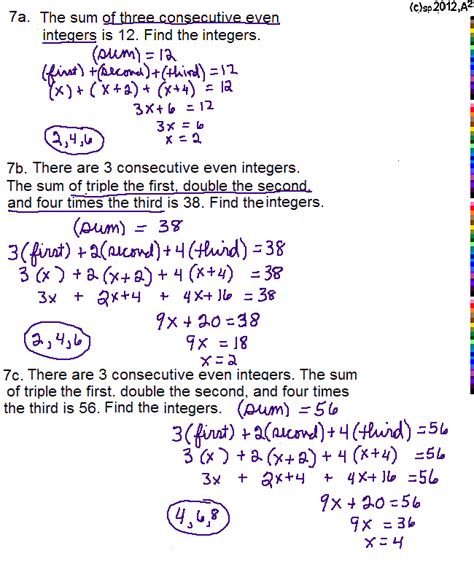 (c)sp2012,A²
7a. The sum of three consecutive even
integers is 12. Find the integers.
(sum) = 12
(first) + (second) + (third) = 12
(x) + (x+2) + (x+4) = 12
3x + 6 = 12
3x = 6
x = 2
2,4,6
7b. There are 3 consecutive even integers.
The sum of triple the first, double the second,
and four times the third is 38. Find the integers.
(sum) = 38
3(first) + 2(second) + 4(third) = 38
3(x) + 2(x+2) + 4(x+4) = 38
3x + 2x+4 + 4x+16 = 38
9x + 20 = 38
9x = 18
x = 2
2,4,6
7c. There are 3 consecutive even integers. The sum
of triple the first. double the second, and four times
the third is 56. Find the integers. (sum) = 56
3(first) + 2(second) + 4(third) = 56
3(x) + 2(x+2) + 4(x+4) = 56
3x + 2x+4 + 4x+16 = 56
9x + 20 = 56
9x = 36
x = 4
4,6,8